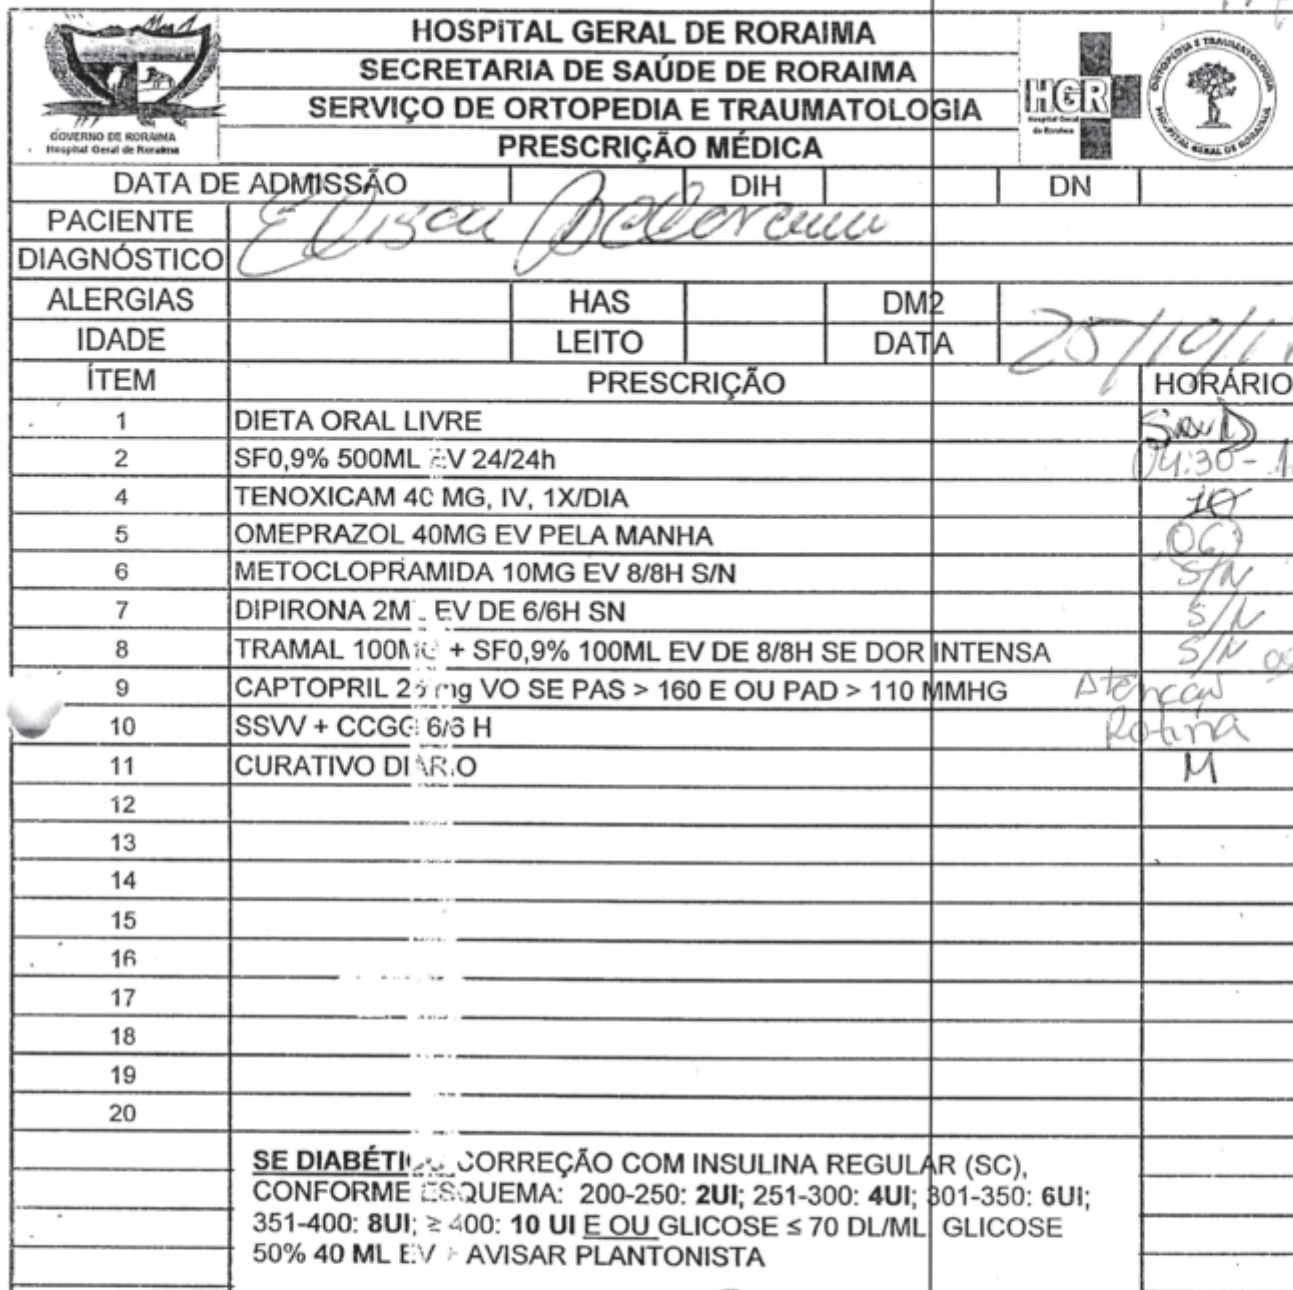 HOSPITAL GERAL DE RORAIMA
SECRETARIA DE SAÚDE DE RORAIMA
SERVIÇO DE ORTOPEDIA E TRAUMATOLOGIA
PRESCRIÇÃO MÉDICA
GOVERNO DE RORAIMA
Hospital Geral de Roraima
HGR
Hospital Geral
de Roraima
ORTOPEDIA E TRAUMATOLOGIA
HOSPITAL GERAL DE RORAIMA
DATA DE ADMISSÃO DIH DN
PACIENTE
DIAGNÓSTICO
ALERGIAS HAS DM2
IDADE LEITO DATA 25/10/1
ÍTEM PRESCRIÇÃO HORÁRIO
1 DIETA ORAL LIVRE
2 SF0,9% 500ML EV 24/24h 04:30 -
4 TENOXICAM 40 MG, IV, 1X/DIA
5 OMEPRAZOL 40MG EV PELA MANHA 06
6 METOCLOPRAMIDA 10MG EV 8/8H S/N S/N
7 DIPIRONA 2ML EV DE 6/6H SN S/N
8 TRAMAL 100MG + SF0,9% 100ML EV DE 8/8H SE DOR INTENSA S/N
9 CAPTOPRIL 25 mg VO SE PAS > 160 E OU PAD > 110 MMHG Atenção
10 SSVV + CCGG 6/6 H Rotina
11 CURATIVO DIÁRIO M
12
13
14
15
16
17
18
19
20
SE DIABÉTICO CORREÇÃO COM INSULINA REGULAR (SC),
CONFORME ESQUEMA: 200-250: 2UI; 251-300: 4UI; 301-350: 6UI;
351-400: 8UI; ≥ 400: 10 UI E OU GLICOSE ≤ 70 DL/ML GLICOSE
50% 40 ML EV AVISAR PLANTONISTA